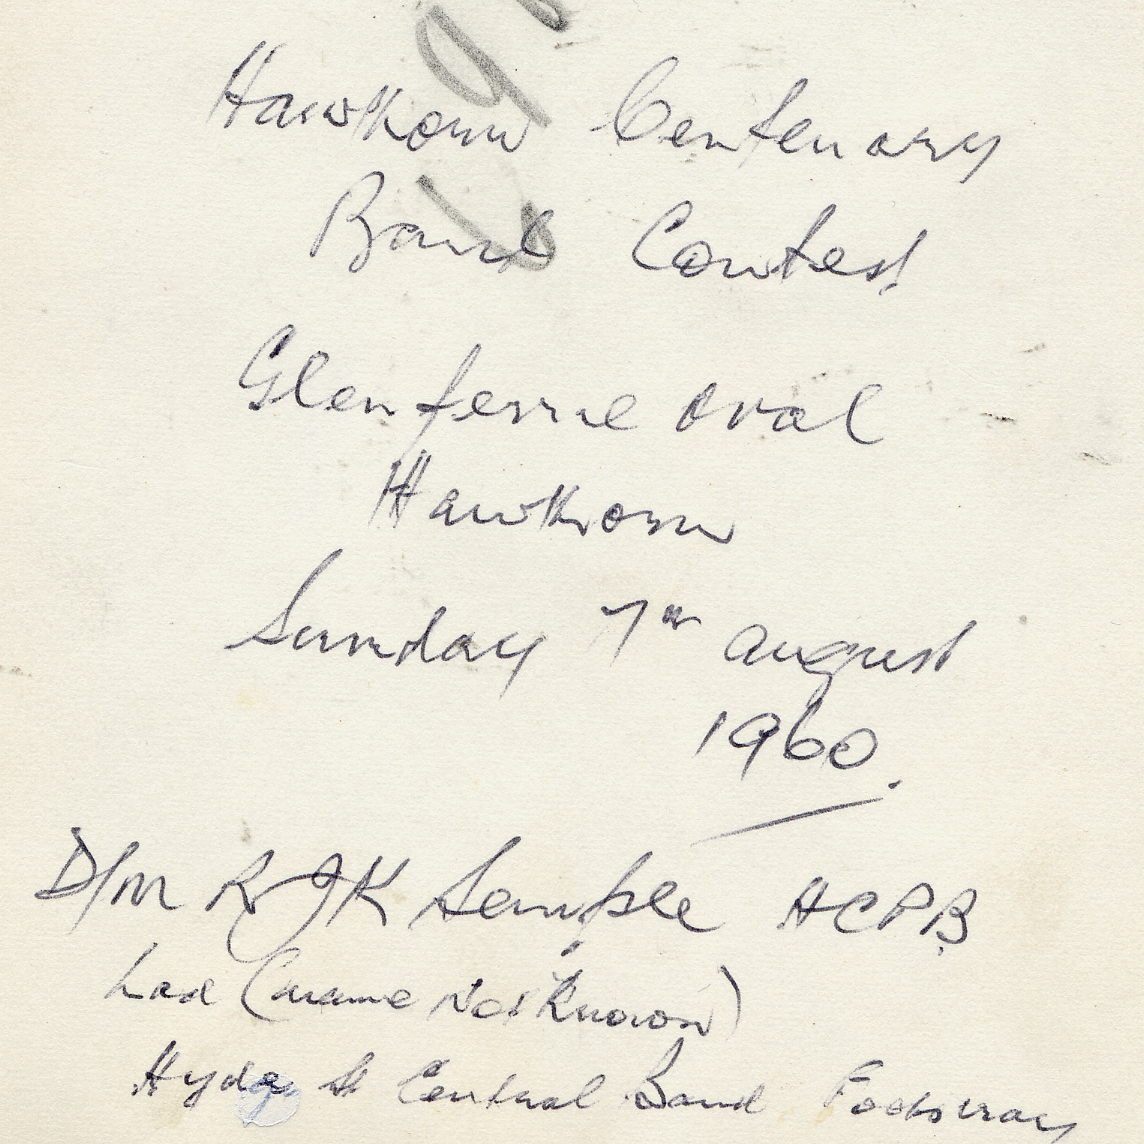 Hawthorn Centenary
Band Contest
Glenferrie Oval
Hawthorn
Sunday 7th August
1960.
D/M R J K Semple HCPB
Lad (name Not Known)
Hyde St Central Band Footscray